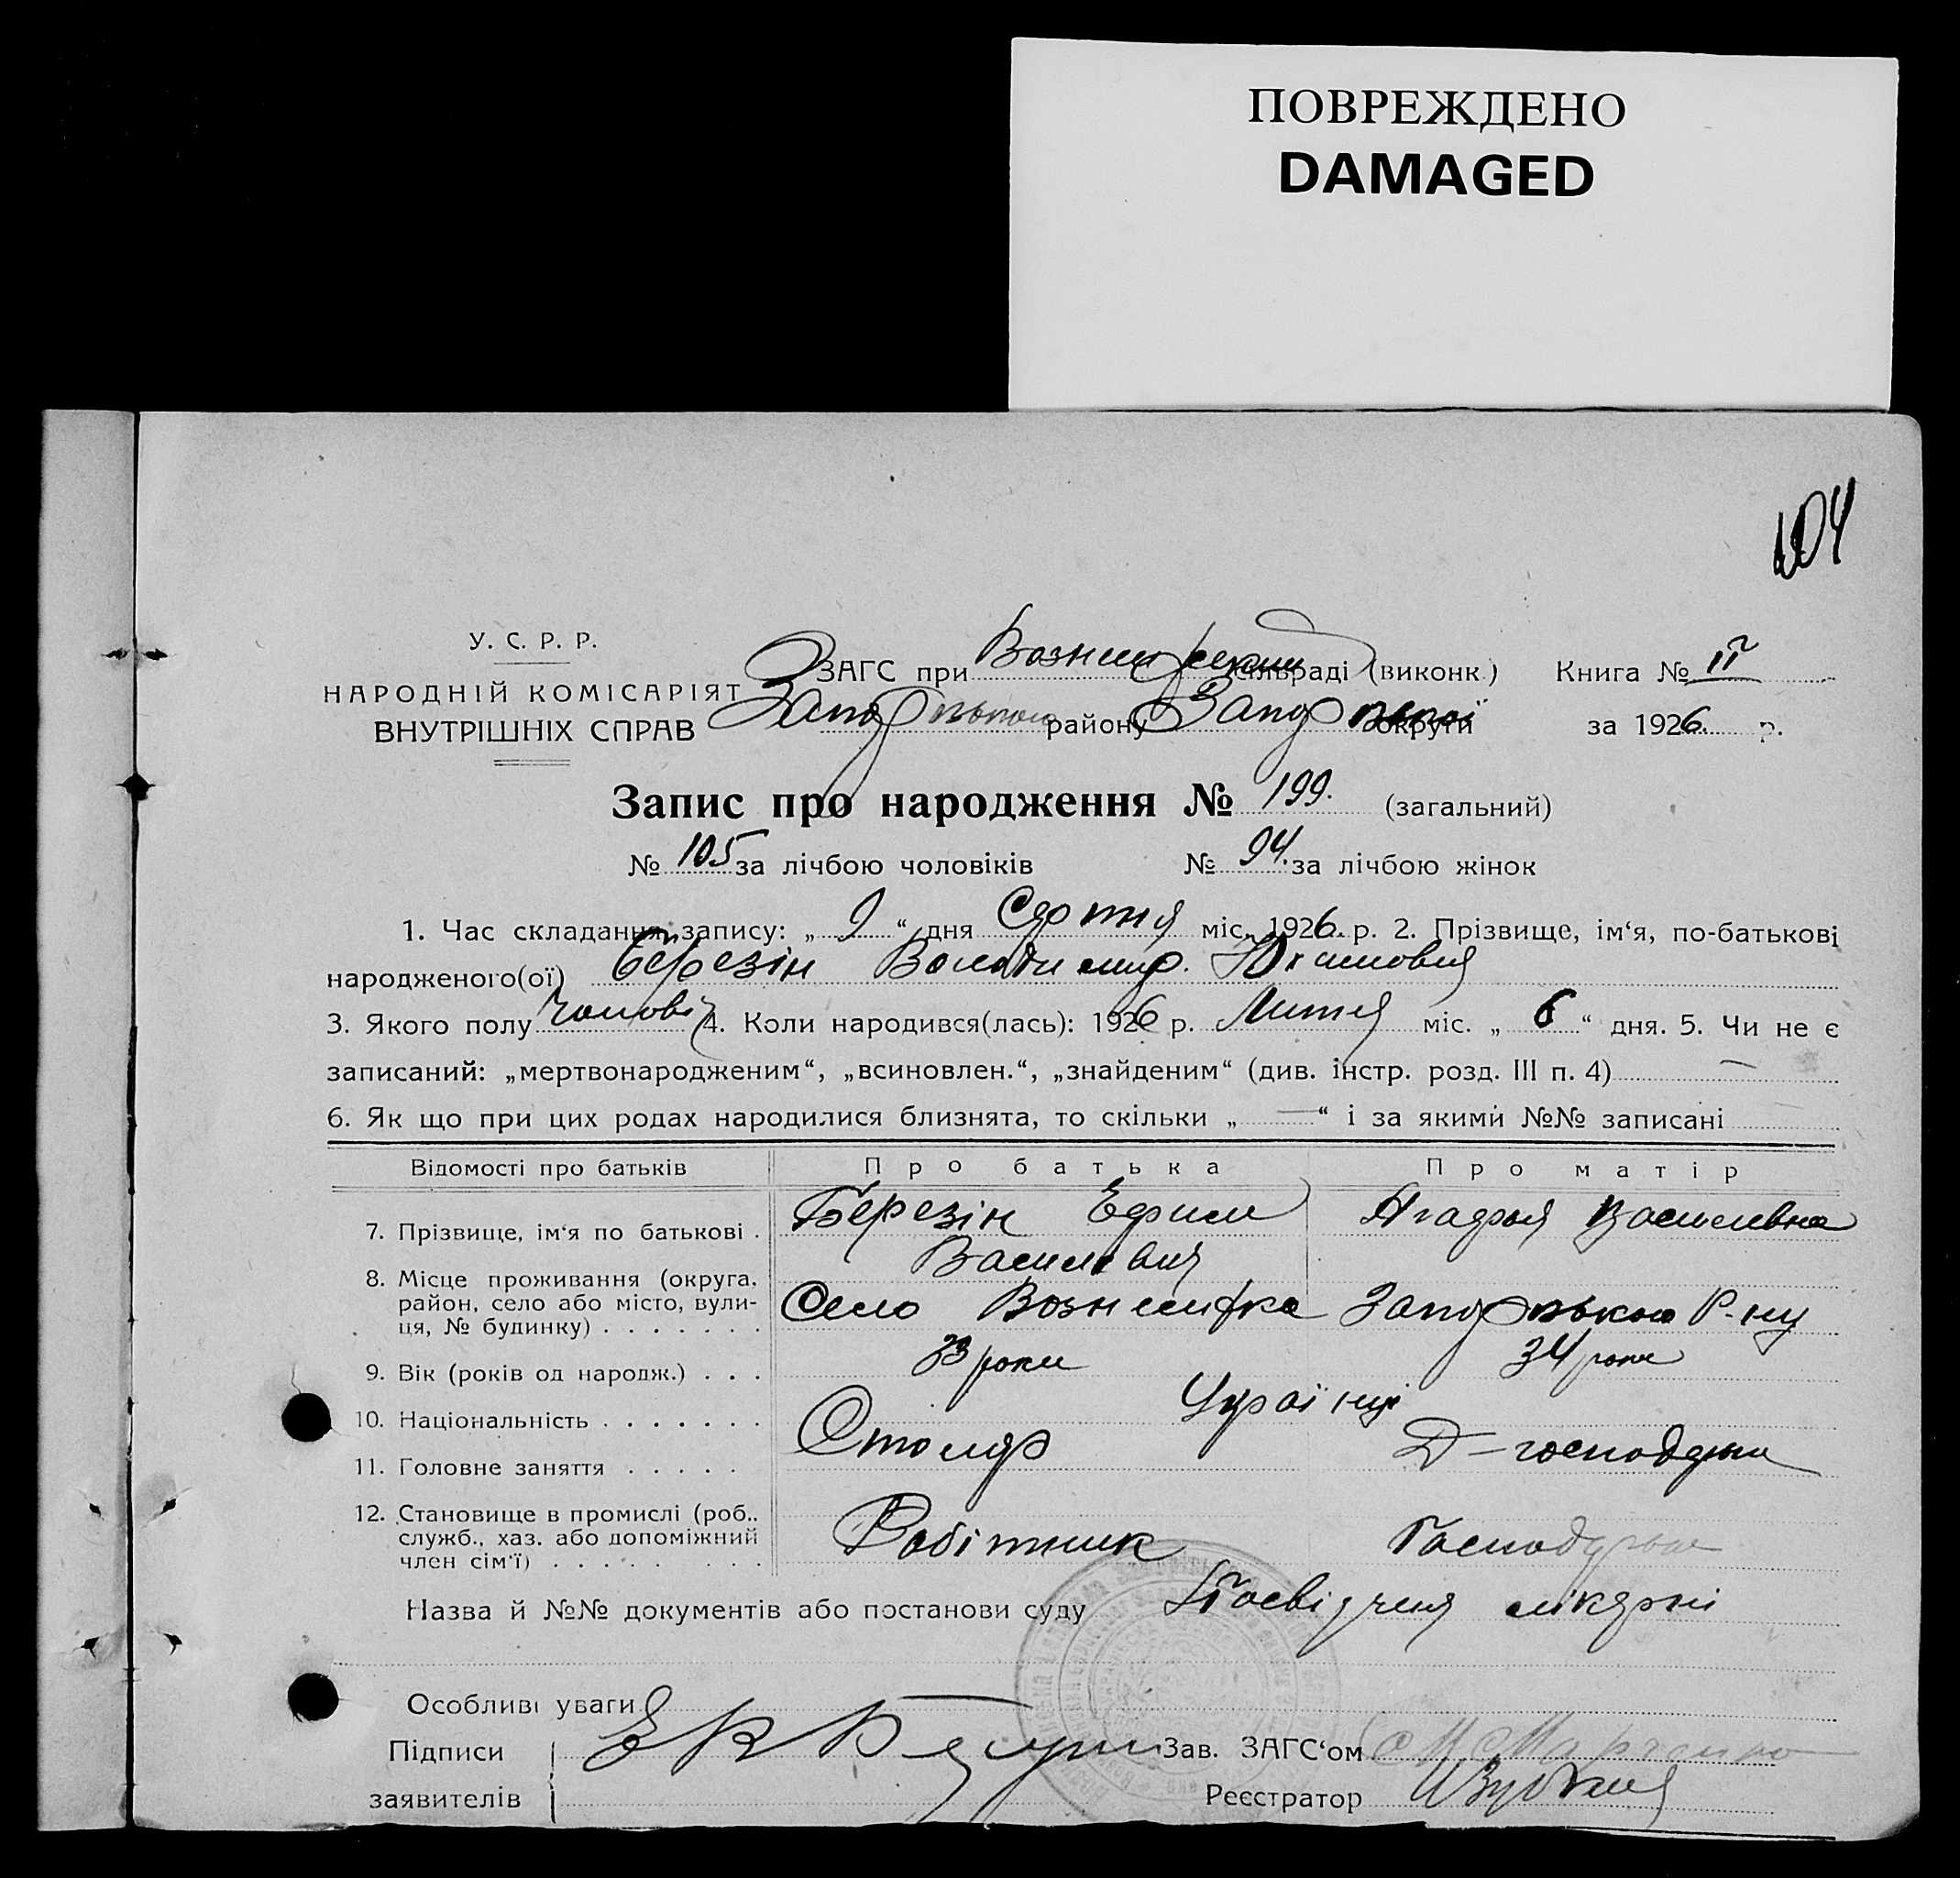 ПОВРЕЖДЕНО
DAMAGED
104
У. С. Р. Р.
НАРОДНІЙ КОМІСАРІЯТ
ВНУТРІШНІХ СПРАВ
ЗАГС при сільраді (виконк.) Книга № II
району округи за 1926. р.
Запис про народження № 199. (загальний)
№ 105 за лічбою чоловіків № 94. за лічбою жінок
1. Час складання запису: „ 9 “ дня міс. 1926. р. 2. Прізвище, ім‘я, по-батькові
народженого(ої) Березін Володимир.
3. Якого полу чолові 4. Коли народився(лась): 1926 р. Лютня міс. „ 6 “ дня. 5. Чи не є
записаний: „мертвонародженим“, „всиновлен.“, „знайденим“ (див. інстр. розд. III п. 4) —
6. Як що при цих родах народилися близнята, то скільки „ — “ і за якими №№ записані
Відомості про батьків Про батька Про матір
7. Прізвище, ім‘я по батькові . Березін Ефим Агафья Василевна
Василевич
8. Місце проживання (округа,
район, село або місто, вули-
ця, № будинку) . . . . . . . Село Вознесенка Р-ну
9. Вік (років од народж.) . . . 33 роки 34 роки
10. Національність . . . . . . . Українці
11. Головне заняття . . . . . Столяр Д-господарка
12. Становище в промислі (роб..
служб., хаз. або допоміжний
член сім‘ї) . . . . . . . . Робітник
Назва й №№ документів або постанови суду Посвідчня лікарні
Особливі уваги
Підписи Зав. ЗАГС‘ом
заявителів Реєстратор